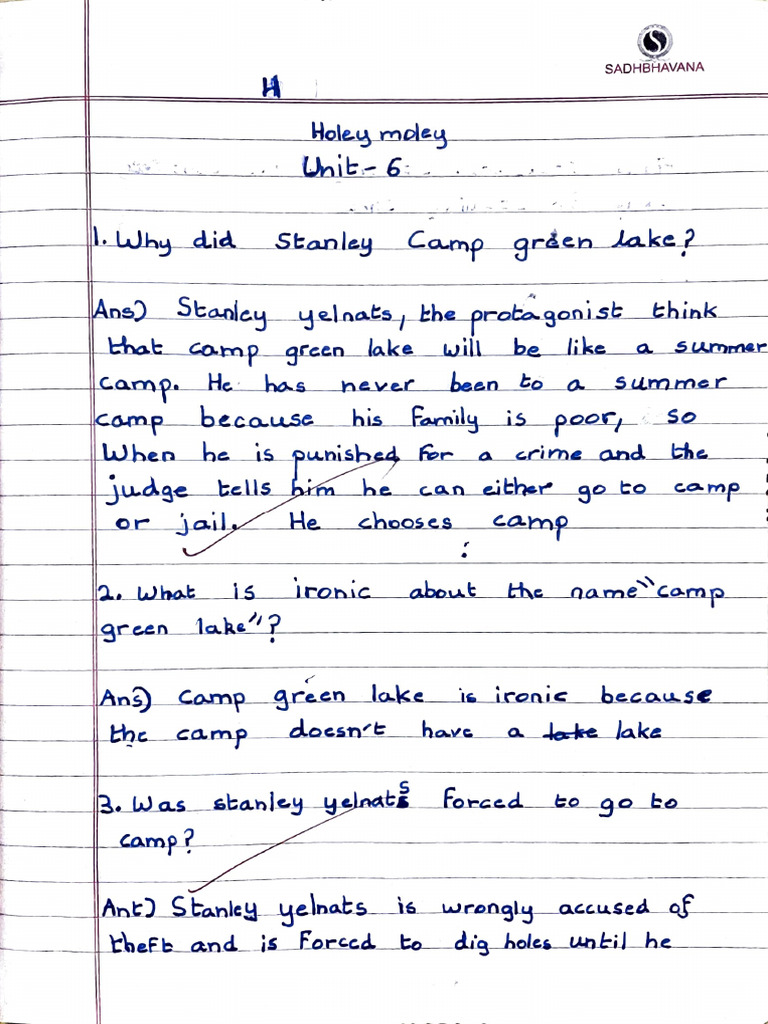 SADHBHAVANA
H
Holey moley
Unit - 6
1. Why did Stanley Camp green lake?
Ans) Stanley yelnats, the protagonist think
that camp green lake will be like a summer
camp. He has never been to a summer
camp because his family is poor, so
When he is punished for a crime and the
judge tells him he can either go to camp
or jail. He chooses camp
2. What is ironic about the name "camp
green lake"?
Ans) Camp green lake is ironic because
the camp doesn't have a lake lake
3. Was stanley yelnats forced to go to
camp?
Ant) Stanley yelnats is wrongly accused of
theft and is Forced to dig holes until he